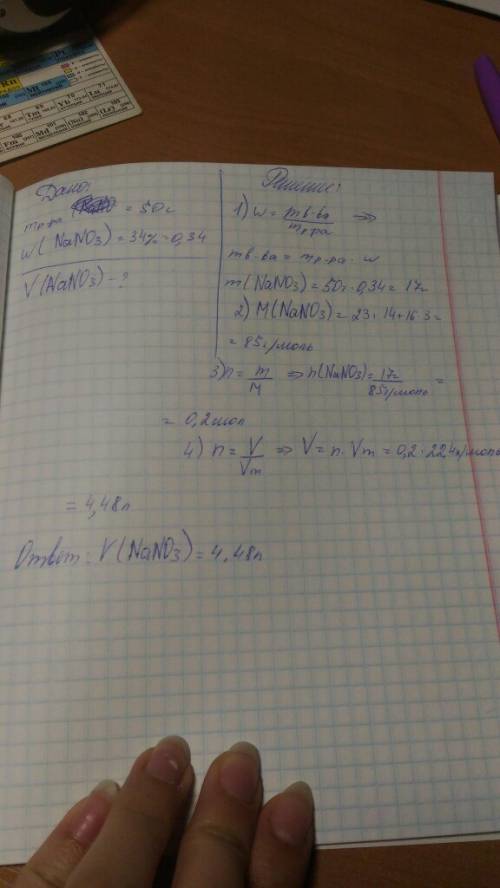 Rn
Tm Yb Lu
Fm Md (No) (Lr)
Дано:
mр-ра = 50г
w(NaNO3) = 34% = 0,34
V(NaNO3) - ?
Решение:
1) w = mв-ва / mр-ра =>
mв-ва = mр-ра · w
m(NaNO3) = 50г · 0,34 = 17г
2) M(NaNO3) = 23+14+16·3 =
= 85г/моль
3) n = m / M => n(NaNO3) = 17г / 85г/моль =
= 0,2мол
4) n = V / Vm => V = n · Vm = 0,2 · 22,4л/моль
= 4,48л
Ответ: V(NaNO3) = 4,48л